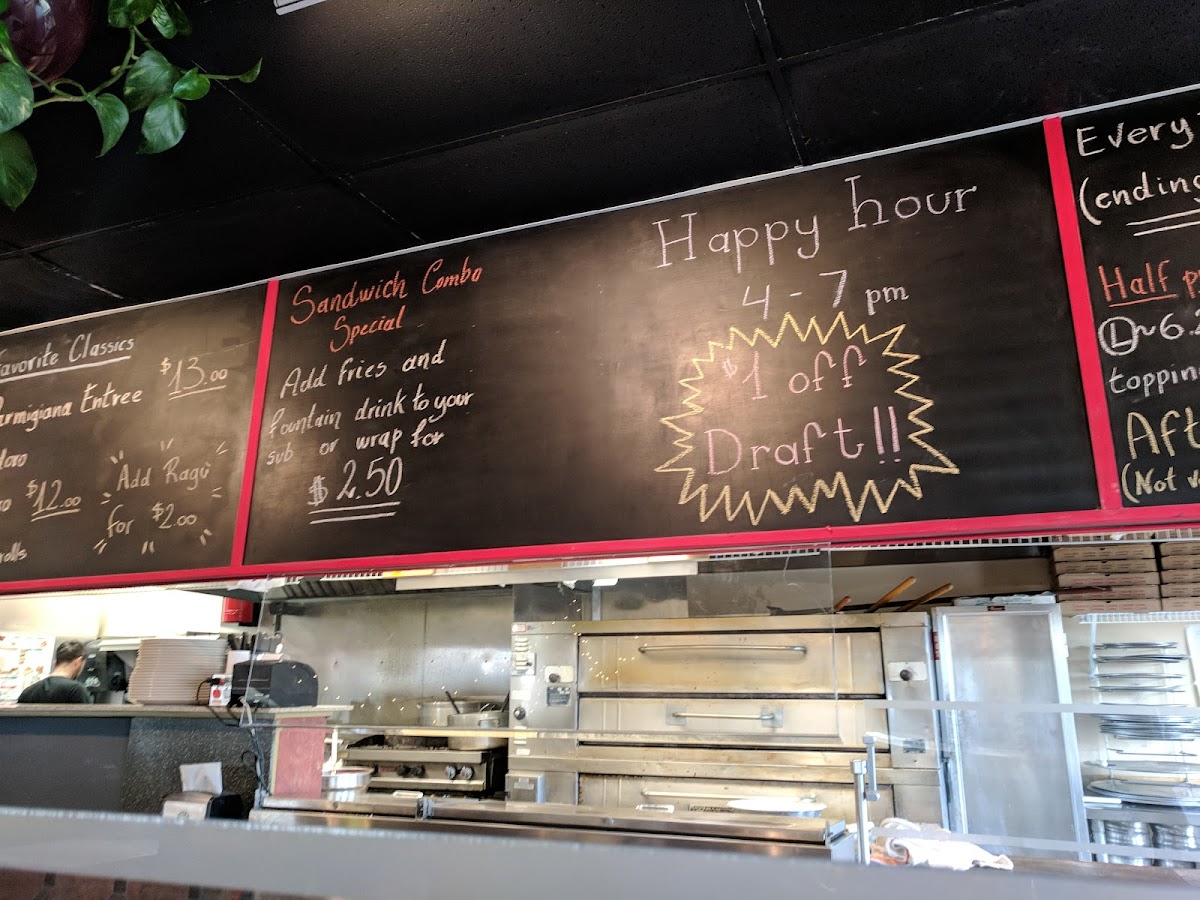 Favorite Classics
Parmigiana Entree $13.00
$12.00
Add Ragu
for $2.00
rolls
Sandwich Combo
Special
Add fries and
fountain drink to your
sub or wrap for
$2.50
Happy hour
4 - 7 pm
$1 off
Draft!!
Every
(ending
Half
L ~ 6.
topping
Aft
(Not